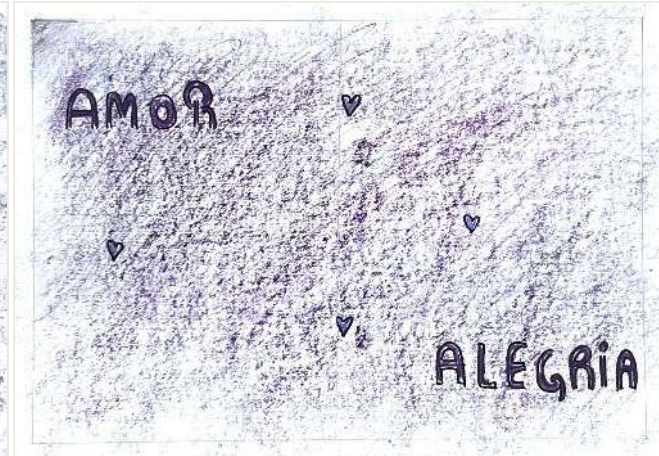 AMOR
ALEGRiA